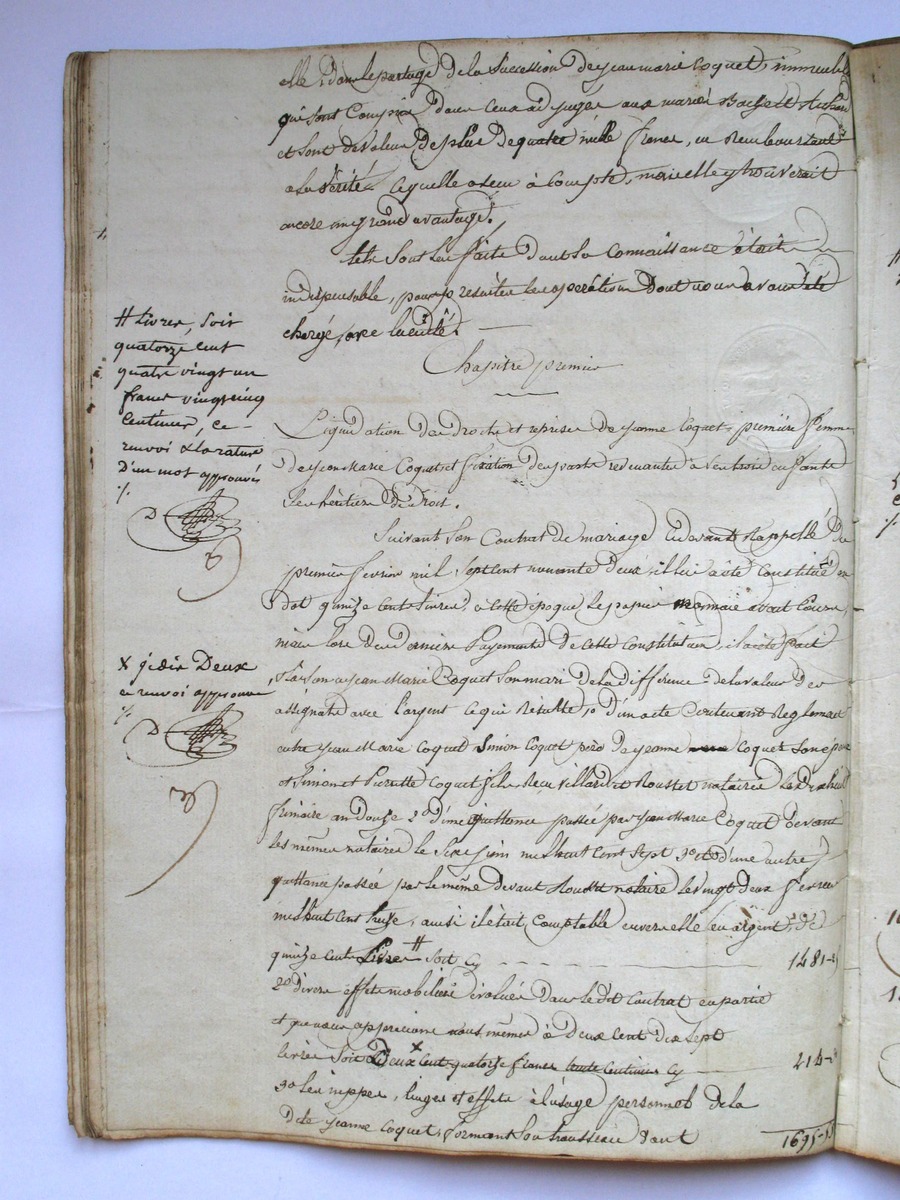 elle dans le partage de la succession de jean marie Coquet, immeubles
qui sont compris dans ceux adjugés aux mariés
et sont de valeur de plus de quatre mille francs, en remboursant
a la vérité ce quelle a reçu à compte, mais elle y trouverait
encore un grand avantage.
tels sont les faits dont la connaissance était
indispensable, pour présenter les opérations dont nous avons été
chargé, avec lucidité.
Chapitre premier
Liquidation des droits et reprises de jeanne Coquet, premiere femme
de jean Marie Coquet et fixation des parts revenantes à ses trois enfants
ses héritiers de droit.
Suivant son Contrat de mariage ci devant rappellé du
premier fevrier mil sept cent nonante deux, il lui a été constitué en
dot quinze cents livres, à cette époque le papier monnaie avait cours,
mais lors des derniers payements de cette constitution, il a été fait
raison a jean Marie Coquet son mari de la différence de la valeur des
assignats avec l'argent ce qui résulte, 1º d'un acte contenant Reglement
entre jean Marie Coquet Simon Coquet père de jeanne Coquet son épouse
et Simon et Pierrette Coquet fils reçu Villard et Rousset notaires le dix huit
frimaire an douze 2º d'une quittance passée par jean Marie Coquet devant
les mêmes notaires le six juin mil huit cent sept 3º et d'une autre
quittance passée par le même devant Rousset notaire le vingt deux fevrier
mil huit cent treize, ainsi il était comptable envers elle en argent, de
quinze cents Livres # soit Cy 1481-25
2º divers effets mobiliers évalués dans le dit Contrat en partie
et que nous apprécions nous mêmes à deux cent dix sept
livres soit Deux x cent quatorze francs trente centimes Cy 214-
3º les nippes, linges et effets à l'usage personnel de la
dite jeanne Coquet, formant son trousseau dont
1695-55
# Livres, soit
quatorze cent
quatre vingt un
francs vingt cinq
centimes, ce
renvoi & la rature
d'un mot approuvés
./.
D
X je dis Deux
ce renvoi approuvé
./.
D